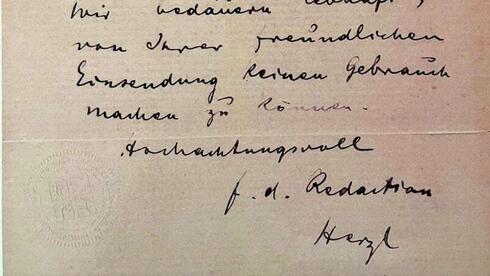 Wir bedauern lebhaft,
von Ihrer freundlichen
Einsendung keinen Gebrauch
machen zu können.
Hochachtungsvoll
f. d. Redaction
Herzl